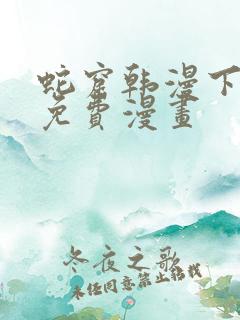 蛇窟韩漫下
免費漫畫
冬夜之歌
未经同意禁止转载